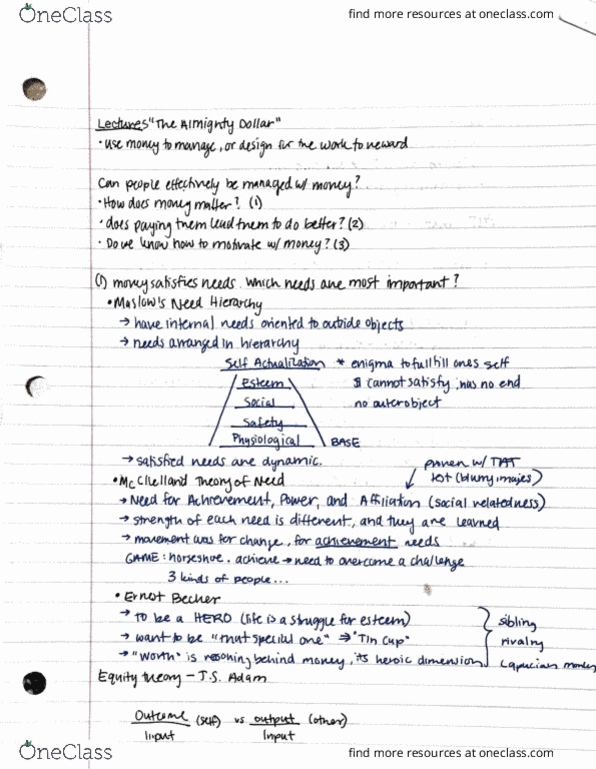 OneClass find more resources at oneclass.com
Lectures "The Almighty Dollar"
• use money to manage, or design for the work to reward
Can people effectively be managed w/ money?
• How does money matter? (1)
• does paying them lead them to do better? (2)
• Do we know how to motivate w/ money? (3)
(1) money satisfies needs. Which needs are most important?
• Maslow's Need Hierarchy
→ have internal needs oriented to outside objects
→ needs arranged in hierarchy
Self Actualization * enigma to fulfill ones self
Esteem & cannot satisfy, has no end
Social no outer object
Safety
Physiological BASE
→ satisfied needs are dynamic. proven w/ TAT
• McClelland Theory of Need test (blurry images)
→ Need for Achievement, Power, and Affiliation (social relatedness)
→ strength of each need is different, and they are learned
→ movement was for change, for achievement needs
GAME: horseshoe. achieve → need to overcome a challenge
3 kinds of people...
• Ernst Becher
→ To be a HERO (life is a struggle for esteem) sibling
→ want to be "that special one" ⇒ "Tin Cup" rivalry
→ "Worth" is reasoning behind money, its heroic dimension Capucian monkey
Equity theory – J.S. Adam
Outcome (self) vs output (other)
Input Input
OneClass find more resources at oneclass.com